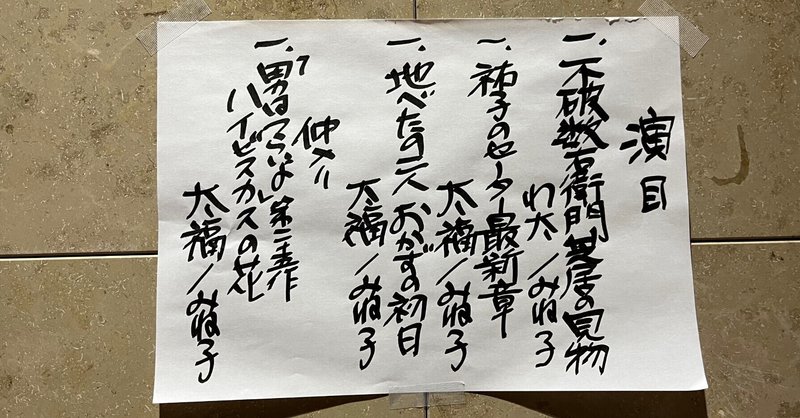 演目
一、不破数右衛門芝居の見物
わ太/みね子
一、祐子のセーター最新章
太福/みね子
一、地べたの二人 おかずの初日
太福/みね子
仲入り
一、「男はつらいよ」第二十五作
ハイビスカスの花
太福/みね子